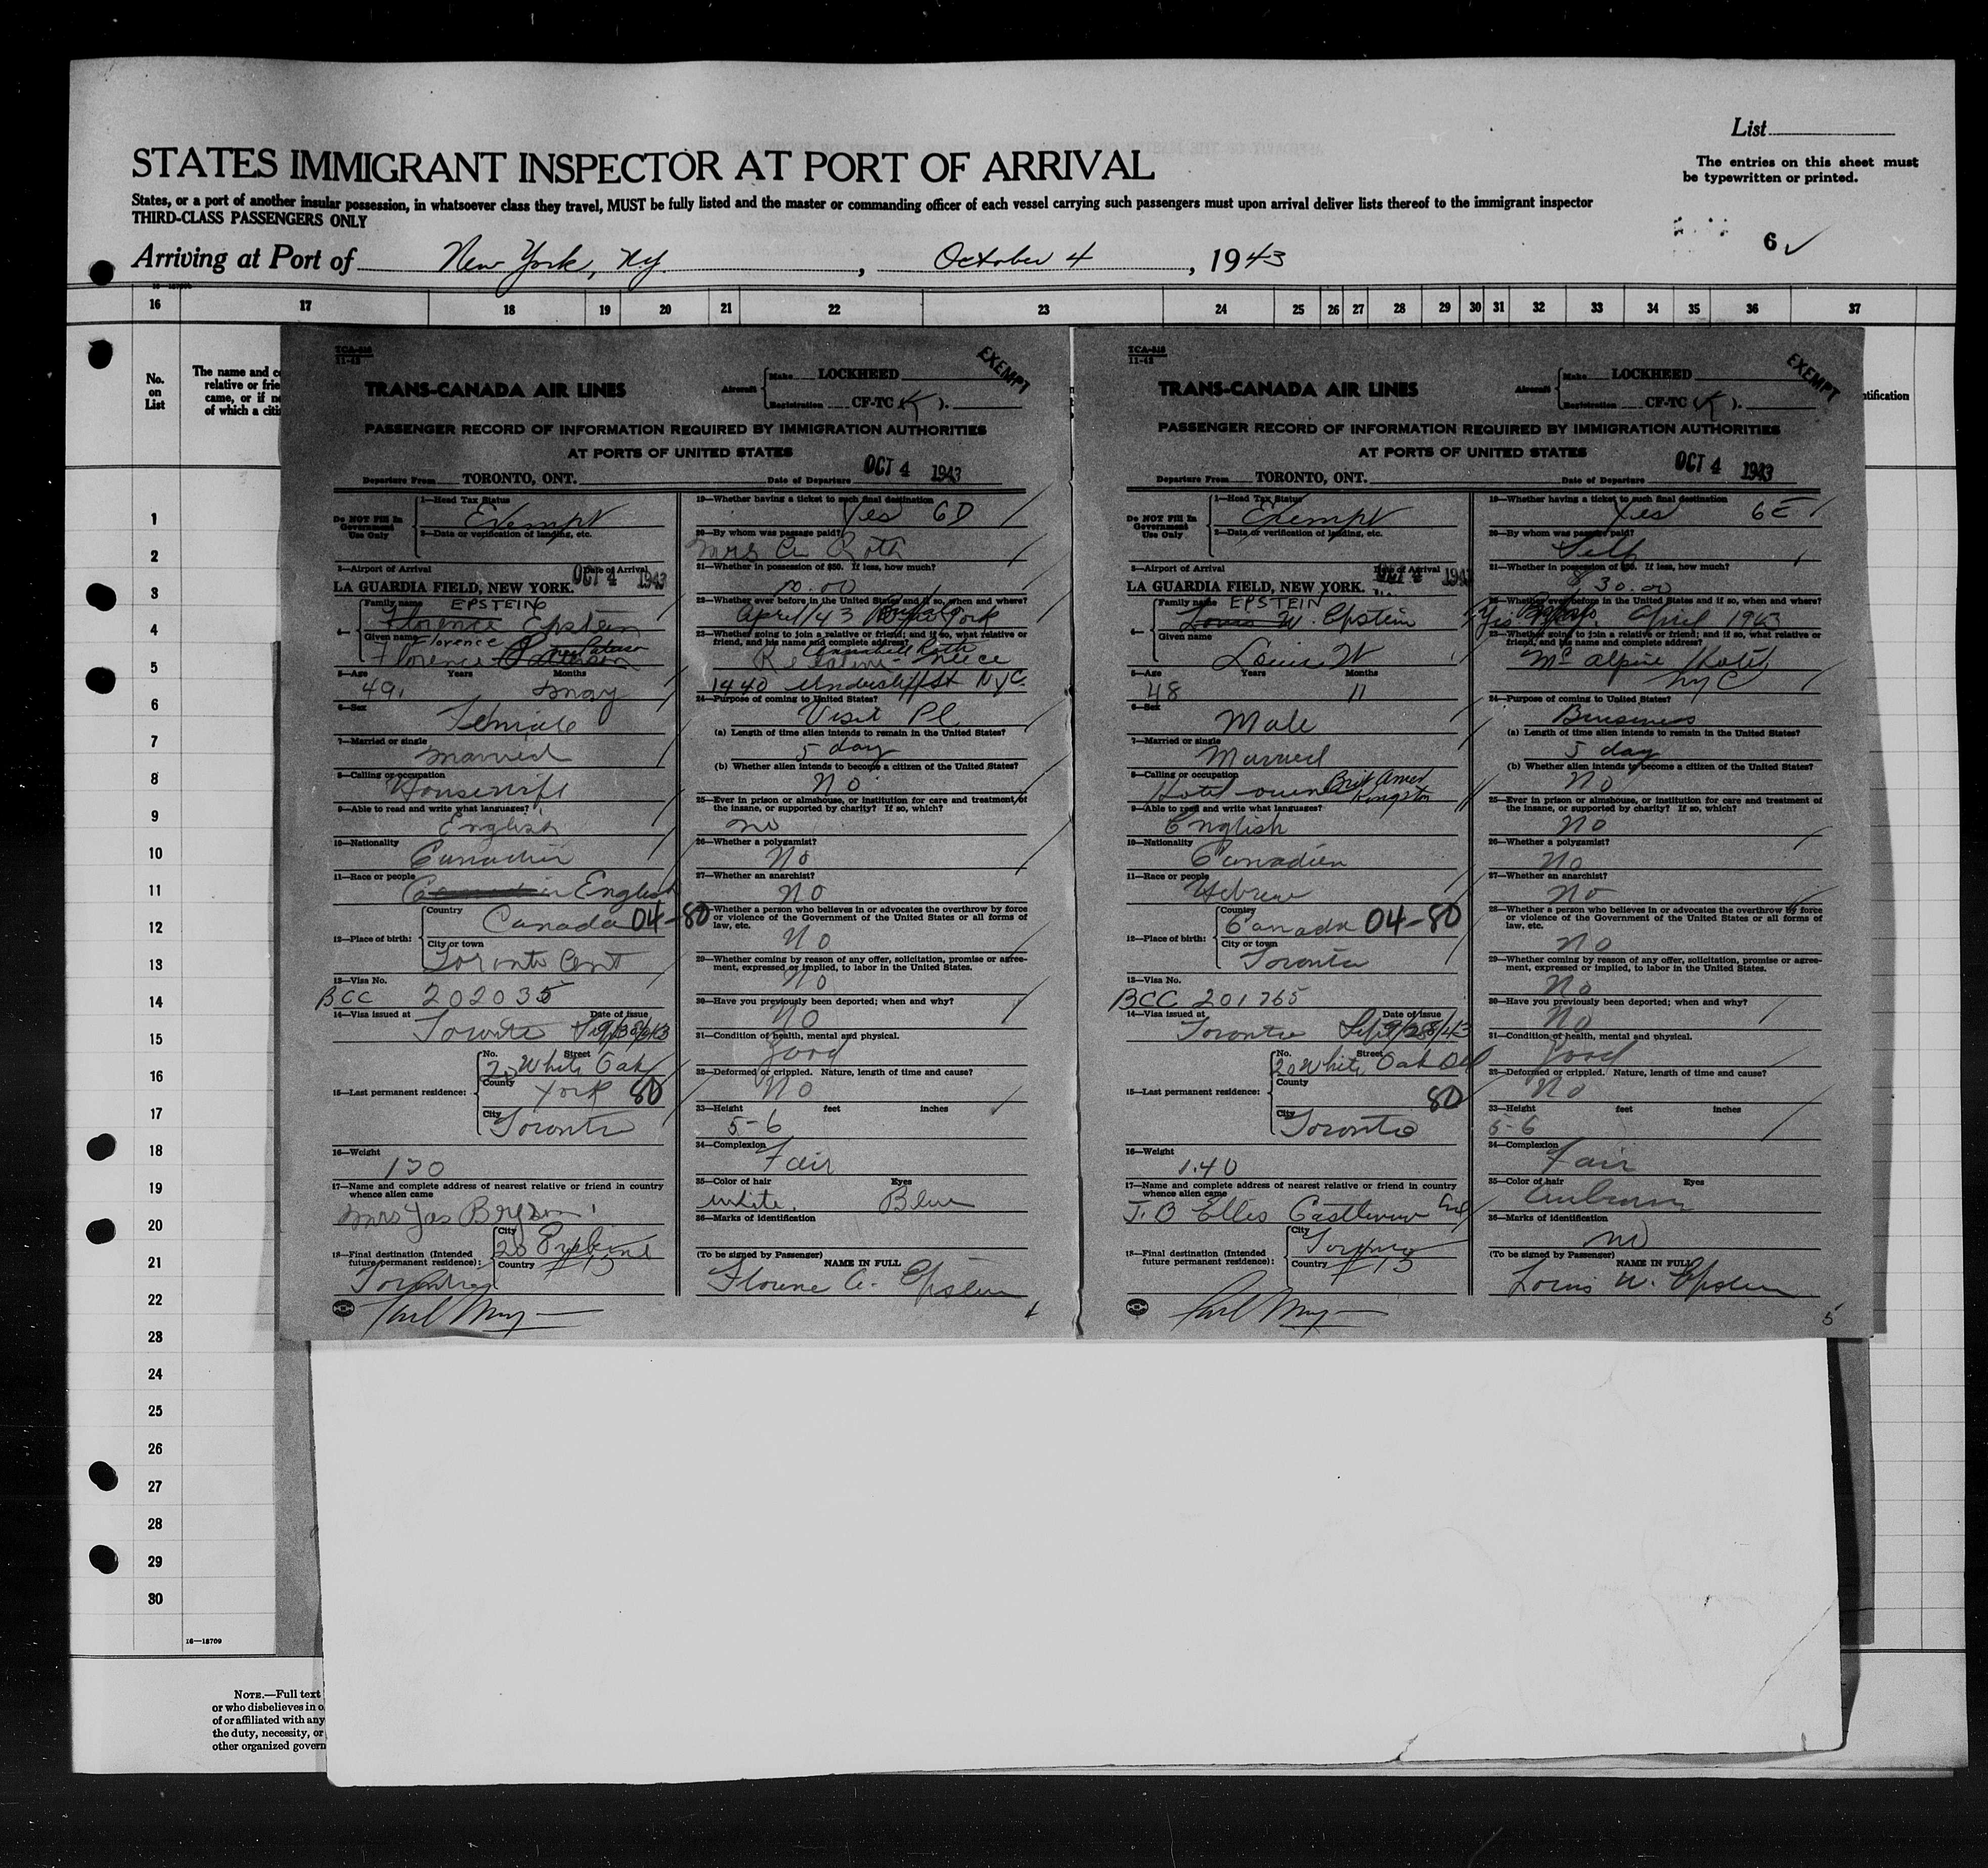 List
STATES IMMIGRANT INSPECTOR AT PORT OF ARRIVAL
The entries on this sheet must
be typewritten or printed.
States, or a port of another insular possession, in whatsoever class they travel, MUST be fully listed and the master or commanding officer of each vessel carrying such passengers must upon arrival deliver lists thereof to the immigrant inspector
THIRD-CLASS PASSENGERS ONLY
6 ✓
Arriving at Port of New York, N.Y. , October 4 , 1943
16 17 18 19 20 21 22 23 24 25 26 27 28 29 30 31 32 33 34 35 36 37
No.
on
List
The name and
relative or frie
came, or if n
of which a citi
tification
1
2
3
4
5
6
7
8
9
10
11
12
13
14
15
16
17
18
19
20
21
22
23
24
25
26
27
28
29
30
16—18709
NOTE.—Full text
or who disbelieves in o
of or affiliated with any
the duty, necessity, or
other organized govern
TCA-818
11-42
EXEMPT
TRANS-CANADA AIR LINES
Aircraft Make LOCKHEED
Registration CF-TC (K).
PASSENGER RECORD OF INFORMATION REQUIRED BY IMMIGRATION AUTHORITIES
AT PORTS OF UNITED STATES
Departure From TORONTO, ONT. Date of Departure OCT 4 1943
Do NOT Fill In
Government
Use Only
1—Head Tax Status
Exempt
2—Data or verification of landing, etc.
3—Airport of Arrival Date of Arrival
LA GUARDIA FIELD, NEW YORK. OCT 4 1943
4— Family name EPSTEIN
Florence Epstein
Given name Florence
Florence
5—Age Years Months
49
6—Sex
Female
7—Married or single
Married
8—Calling or occupation
Housewife
9—Able to read and write what languages?
English
10—Nationality
Canadian
11—Race or people
English
12—Place of birth: Country
Canada 04-80
City or town
Toronto Ont
13—Visa No.
BCC 202035
14—Visa issued at Date of Issue
Toronto
15—Last permanent residence: No. Street
20 White Oak
County
York 80
City
Toronto
16—Weight
17—Name and complete address of nearest relative or friend in country
whence alien came
Mrs Jas Bryson
18—Final destination (Intended
future permanent residence): City
Country
Toronto
19—Whether having a ticket to such final destination
Yes 6D
20—By whom was passage paid?
Mrs A Roth
21—Whether in possession of $50. If less, how much?
22—Whether ever before in the United States and if so, when and where?
April/43 Buffalo
23—Whether going to join a relative or friend; and if so, what relative or
friend, and his name and complete address?
Annabell Roth
Niece
1440 Undercliff St NYC
24—Purpose of coming to United States?
Visit Pl
(a) Length of time alien intends to remain in the United States?
5 day
(b) Whether alien intends to become a citizen of the United States?
No
25—Ever in prison or almshouse, or institution for care and treatment of
the insane, or supported by charity? If so, which?
no
26—Whether a polygamist?
No
27—Whether an anarchist?
No
28—Whether a person who believes in or advocates the overthrow by force
or violence of the Government of the United States or all forms of
law, etc.
No
29—Whether coming by reason of any offer, solicitation, promise or agree-
ment, expressed or implied, to labor in the United States.
No
30—Have you previously been deported; when and why?
No
31—Condition of health, mental and physical.
Good
32—Deformed or crippled. Nature, length of time and cause?
No
33—Height feet inches
5-6
34—Complexion
Fair
35—Color of hair Eyes
White Blue
36—Marks of identification
(To be signed by Passenger) NAME IN FULL
Florence A. Epstein
TCA-818
11-42
EXEMPT
TRANS-CANADA AIR LINES
Aircraft Make LOCKHEED
Registration CF-TC (K).
PASSENGER RECORD OF INFORMATION REQUIRED BY IMMIGRATION AUTHORITIES
AT PORTS OF UNITED STATES
Departure From TORONTO, ONT. Date of Departure OCT 4 1943
Do NOT Fill In
Government
Use Only
1—Head Tax Status
Exempt
2—Data or verification of landing, etc.
3—Airport of Arrival Date of Arrival
LA GUARDIA FIELD, NEW YORK. 1943
4— Family name EPSTEIN
Louis W. Epstein
Given name
Louis W
5—Age Years Months
48 11
6—Sex
Male
7—Married or single
Married
8—Calling or occupation
Hotel owner Brit Amer Kingston
9—Able to read and write what languages?
English
10—Nationality
Canadian
11—Race or people
Hebrew
12—Place of birth: Country
Canada 04-80
City or town
Toronto
13—Visa No.
BCC 201765
14—Visa issued at Date of Issue
Toronto Sept 9/28/43
15—Last permanent residence: No. Street
20 White Oak Bld
County
80
City
Toronto
16—Weight
140
17—Name and complete address of nearest relative or friend in country
whence alien came
J. O Elles Castleview
18—Final destination (Intended
future permanent residence): City
Toronto
Country
19—Whether having a ticket to such final destination
Yes 6E
20—By whom was passage paid?
Self
21—Whether in possession of $50. If less, how much?
30.00
22—Whether ever before in the United States and if so, when and where?
Yes April 1943
23—Whether going to join a relative or friend; and if so, what relative or
friend, and his name and complete address?
McAlpine Hotel
NYC
24—Purpose of coming to United States?
Business
(a) Length of time alien intends to remain in the United States?
5 day
(b) Whether alien intends to become a citizen of the United States?
No
25—Ever in prison or almshouse, or institution for care and treatment of
the insane, or supported by charity? If so, which?
No
26—Whether a polygamist?
No
27—Whether an anarchist?
No
28—Whether a person who believes in or advocates the overthrow by force
or violence of the Government of the United States or all forms of
law, etc.
No
29—Whether coming by reason of any offer, solicitation, promise or agree-
ment, expressed or implied, to labor in the United States.
No
30—Have you previously been deported; when and why?
No
31—Condition of health, mental and physical.
Good
32—Deformed or crippled. Nature, length of time and cause?
No
33—Height feet inches
5-6
34—Complexion
Fair
35—Color of hair Eyes
Auburn
36—Marks of identification
no
(To be signed by Passenger) NAME IN FULL
Louis W. Epstein
5